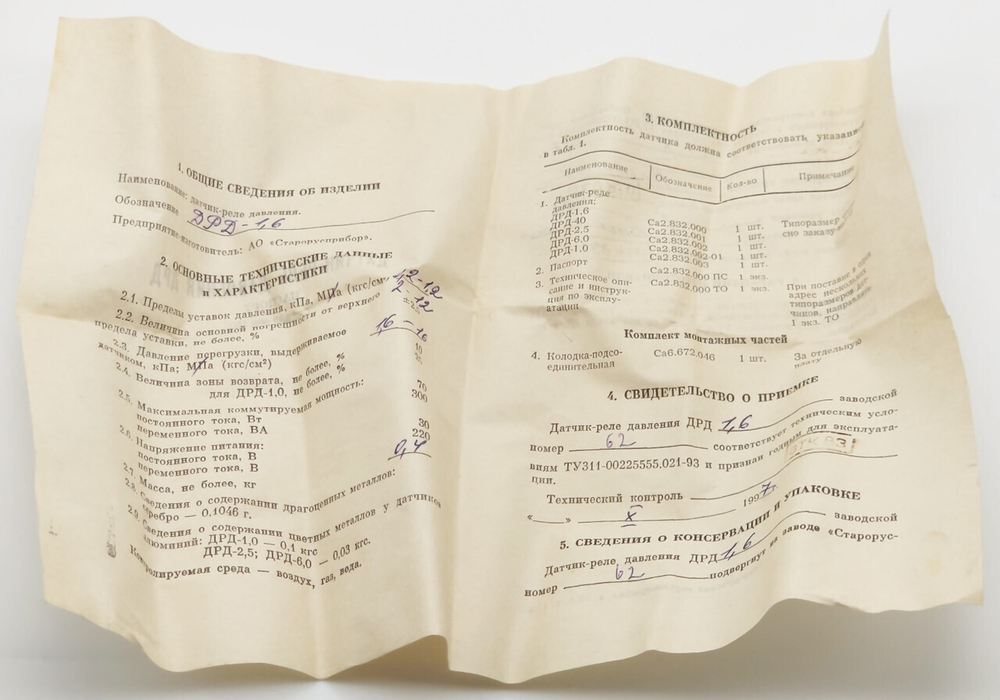 1. ОБЩИЕ СВЕДЕНИЯ ОБ ИЗДЕЛИИ
Наименование: датчик-реле давления.
Обозначение ДРД-1,6
Предприятие-изготовитель: АО «Старорусприбор».
2. ОСНОВНЫЕ ТЕХНИЧЕСКИЕ ДАННЫЕ
и ХАРАКТЕРИСТИКИ
2.1. Пределы уставок давления, кПа, МПа (кгс/см²
2.2. Величина основной погрешности от верхнего
предела уставки, не более, %
2.3. Давление перегрузки, выдерживаемое
датчиком, кПа; МПа (кгс/см²) 16
2.4. Величина зоны возврата, не более, %
для ДРД-1,0, не более, %
2.5. Максимальная коммутируемая мощность:
постоянного тока, Вт 70
переменного тока, ВА 300
2.6. Напряжение питания:
постоянного тока, В 30
переменного тока, В 220
2.7. Масса, не более, кг 0,4
2.8. Сведения о содержании драгоценных металлов:
серебро — 0,1046 г.
2.9. Сведения о содержании цветных металлов у датчиков
алюминий: ДРД-1,0 — 0,1 кгс
ДРД-2,5; ДРД-6,0 — 0,03 кгс.
Контролируемая среда — воздух, газ, вода.
3. КОМПЛЕКТНОСТЬ
Комплектность датчика должна соответствовать указанной
в табл. 1.
Наименование Обозначение Кол-во Примечание
1. Датчик-реле
давления:
ДРД-1,6 Са2.832.000 1 шт. Типоразмер
ДРД-40 Са2.832.001 1 шт. сно заказу
ДРД-2,5 Са2.832.002 1 шт.
ДРД-6,0 Са2.832.002-01 1 шт.
ДРД-1,0 Са2.832.003 1 шт.
2. Паспорт Са2.832.000 ПС 1 экз.
3. Техническое опи- Са2.832.000 ТО 1 экз. При поставке в один
сание и инструк- адрес нескольких
ция по эксплу- типоразмеров дат-
атации чиков, направлять
1 экз. ТО
Комплект монтажных частей
4. Колодка-подсо- Са6.672.046 1 шт. За отдельную
единительная плату
4. СВИДЕТЕЛЬСТВО О ПРИЕМКЕ
Датчик-реле давления ДРД 1,6 заводской
номер 62 соответствует техническим усло-
виям ТУ311-00225555.021-93 и признан годным для эксплуата-
ции.
Технический контроль 1997 г.
« » X
5. СВЕДЕНИЯ О КОНСЕРВАЦИИ И УПАКОВКЕ
Датчик-реле давления ДРД 1,6 заводской
номер 62 подвергнут на заводе «Старорус-